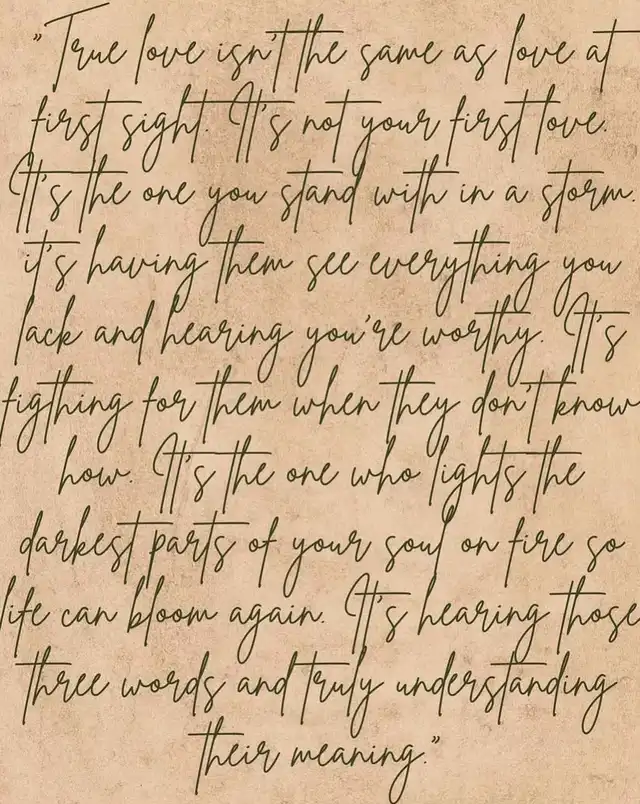 "True love isn't the same as love at
first sight. It's not your first love.
It's the one you stand with in a storm.
it's having them see everything you
lack and hearing you're worthy. It's
figthing for them when they don't know
how. It's the one who lights the
darkest parts of your soul on fire so
life can bloom again. It's hearing those
three words and truly understanding
their meaning."